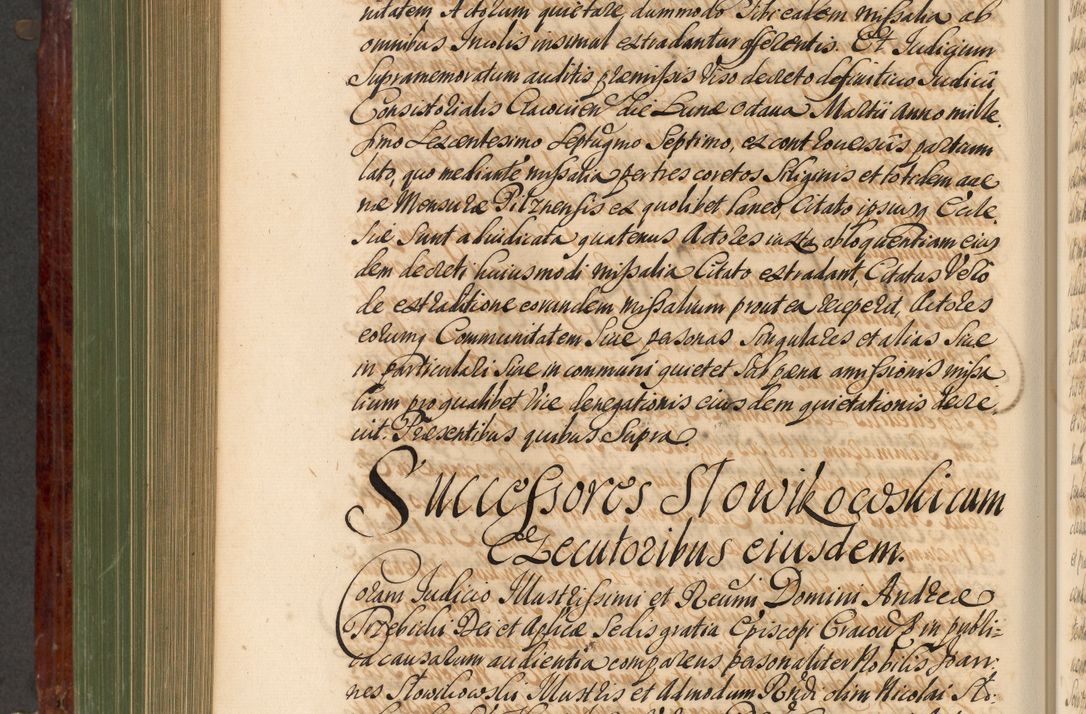 nitatem Actorum quietare, dummodo Sibi eadem missalia ab
omnibus Incolis insimul extradantur offerentis. Et Iudicium
Supramemoratum auditis praemissis Viso decreto definitivo Iudicii
Consistorialis Cracovien die Lunae Octava Martii Anno mille
simo Sexcentesimo Septugmo Septimo, ex controversiis partium
lato, quo mediante missalia per tres coretos Siliginis et totedem ave
nae Mensurae Pilznensis ex quolibet laneo Citato ipsiusq Eccle
siae sunt adiudicata quatenus Actores iuxta obloquentiam eius
dem decreti huiusmodi missalia Citato extradant, Citatus Vero
de extraditione eorundem missalium prout ea reciperit, Actores
eorumq Communitatem Sive personas Singulares et alias Sive
in particulari Sive in communi quietet Sub paena amissionis missa
lium pro qualibet Vice denegationis eiusdem quietationis decre
vit. Praesentibus quibus Supra.
Successores Slowikowski cum
Executoribus eiusdem.
Coram Iudicio Illustrissimi et Reũmi Domini Andreae
Trzebicki Dei et Aplicae Sedis gratia Episcopi Cracov in publi-
ca causarum audientia comparens personaliter Nobilis Joan
nes Slowikowski Illustris et Admodum Rndi olim Nicolai Slo-